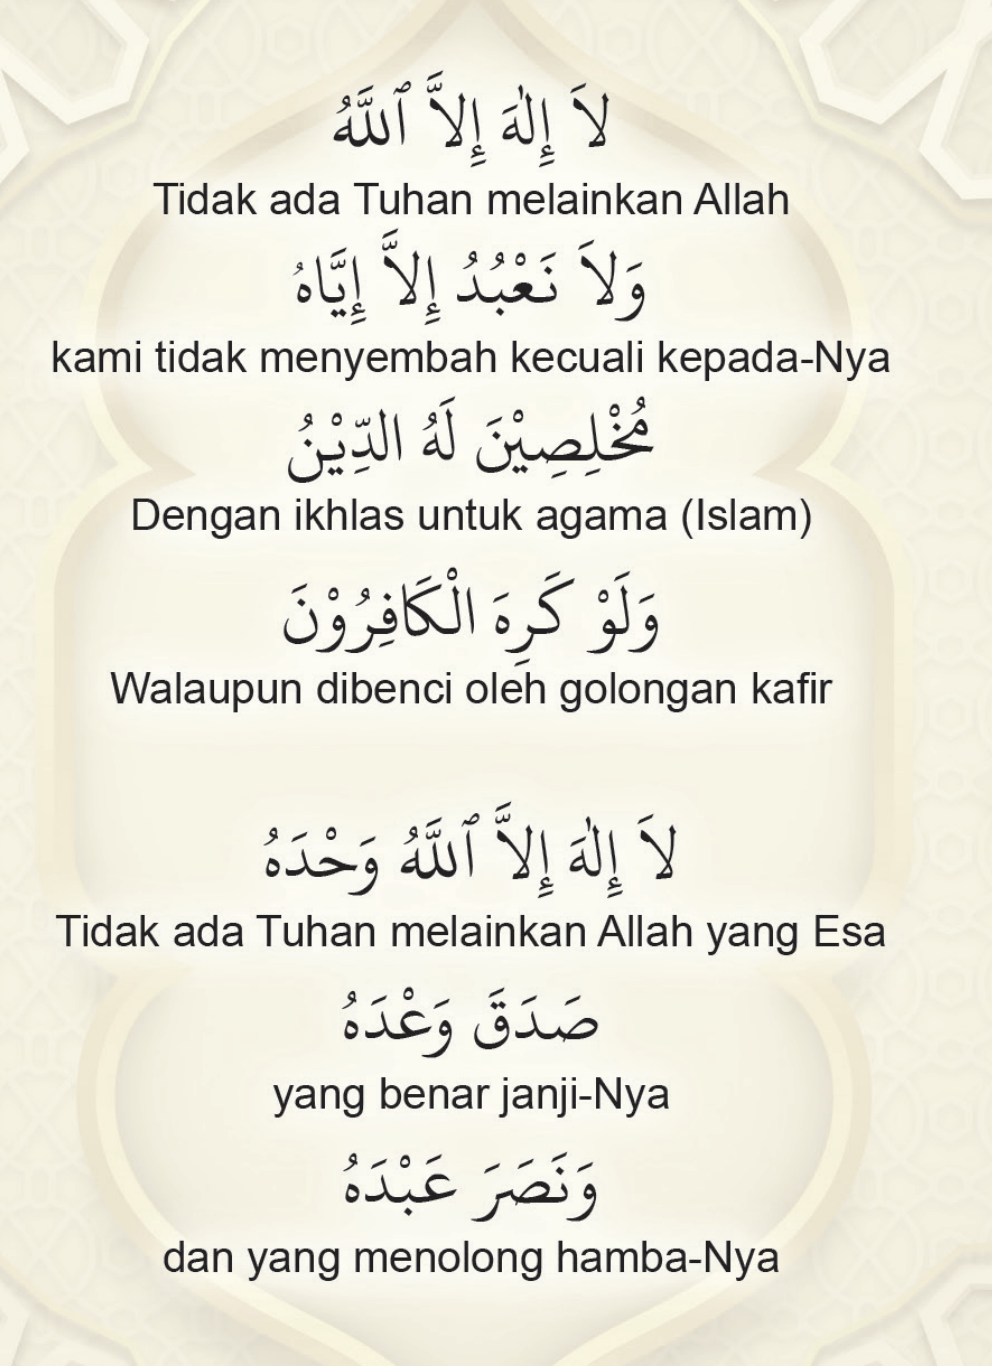 لاَ إِلٰهَ إِلاَّ ٱللَّهُ
Tidak ada Tuhan melainkan Allah
وَلاَ نَعْبُدُ إِلاَّ إِيَّاهُ
kami tidak menyembah kecuali kepada-Nya
مُخْلِصِيْنَ لَهُ الدِّيْنُ
Dengan ikhlas untuk agama (Islam)
وَلَوْ كَرِهَ الْكَافِرُوْنَ
Walaupun dibenci oleh golongan kafir
لاَ إِلٰهَ إِلاَّ ٱللَّهُ وَحْدَهُ
Tidak ada Tuhan melainkan Allah yang Esa
صَدَقَ وَعْدَهُ
yang benar janji-Nya
وَنَصَرَ عَبْدَهُ
dan yang menolong hamba-Nya